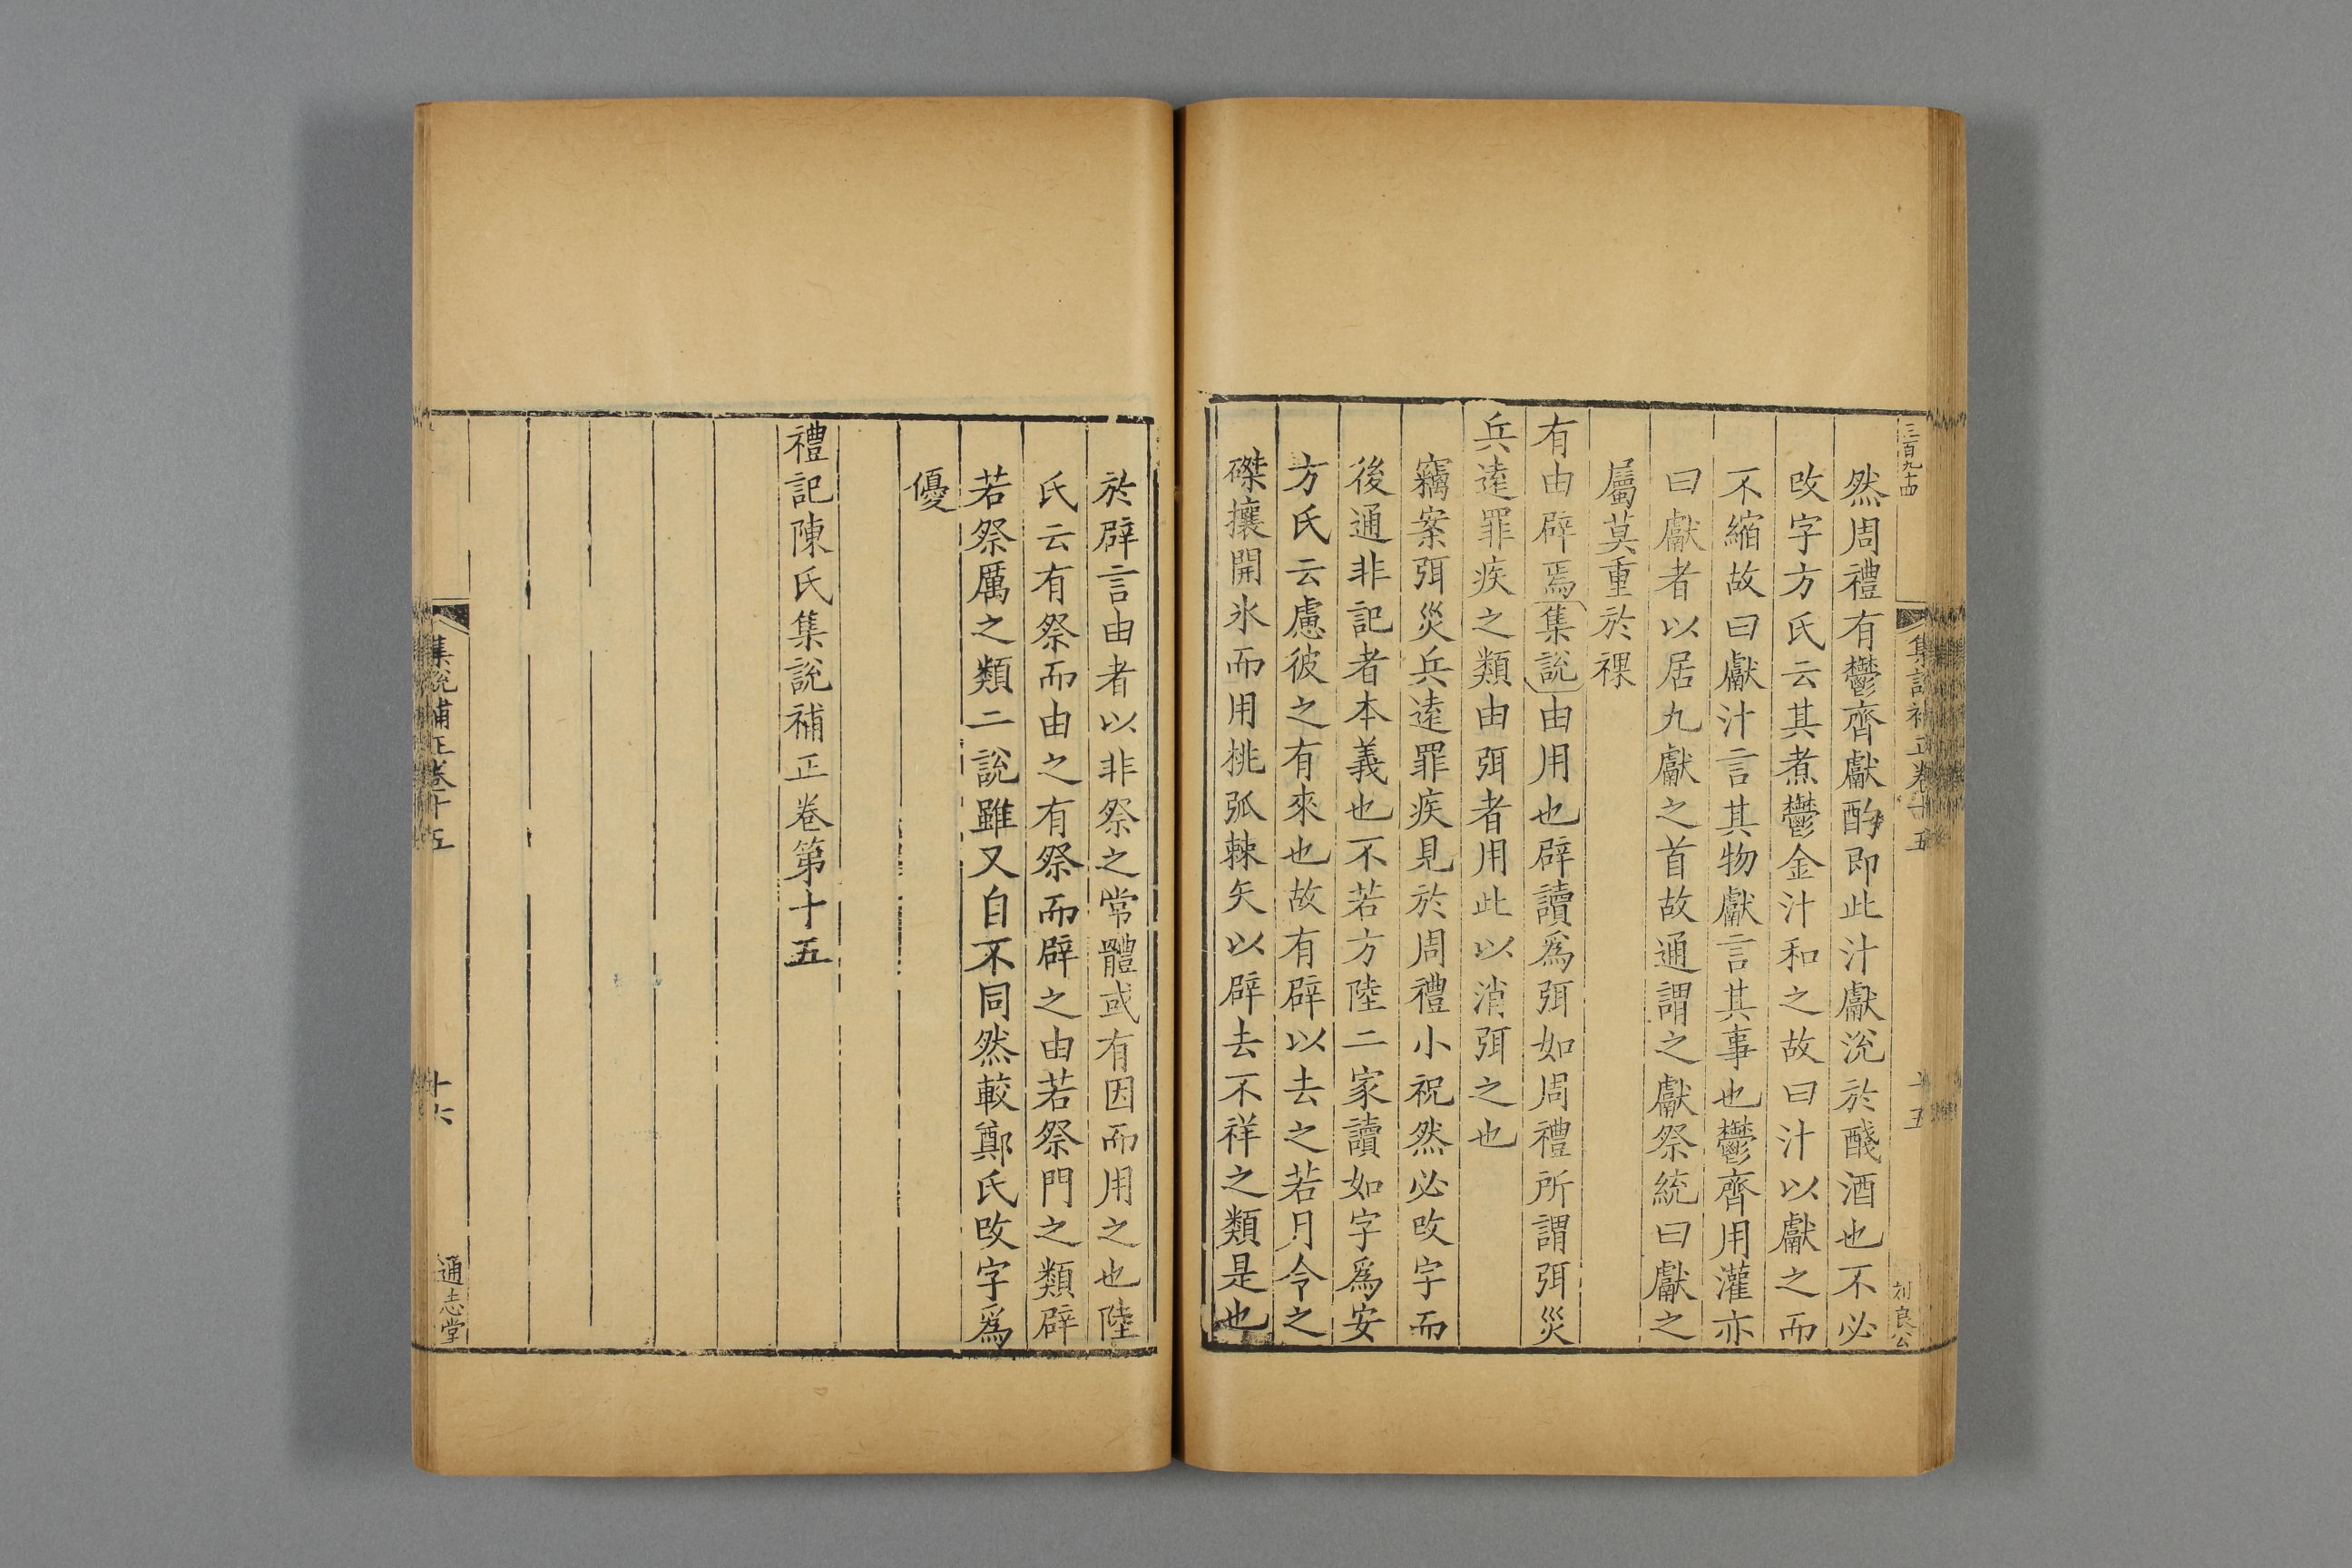 三百九十四
集說補正卷十五
十五
刘良公
然周禮有鬱齊獻酌即此汁獻涗於醆酒也不必
改字方氏云其煮鬱金汁和之故曰汁以獻之而
不縮故曰獻汁言其物獻言其事也鬱齊用灌亦
曰獻者以居九獻之首故通謂之獻祭統曰獻之
屬莫重於祼
有由辟焉集說由用也辟讀爲弭如周禮所謂弭災
兵遠罪疾之類由弭者用此以消弭之也
竊案弭災兵遠罪疾見於周禮小祝然必改字而
後通非記者本義也不若方陸二家讀如字爲安
方氏云慮彼之有來也故有辟以去之若月令之
磔攘開氷而用桃弧棘矢以辟去不祥之類是也
於辟言由者以非祭之常體或有因而用之也陸
氏云有祭而由之有祭而辟之由若祭門之類辟
若祭厲之類二說雖又自不同然較鄭氏改字爲
優
禮記陳氏集說補正卷第十五
集說補正卷十五
十六
通志堂